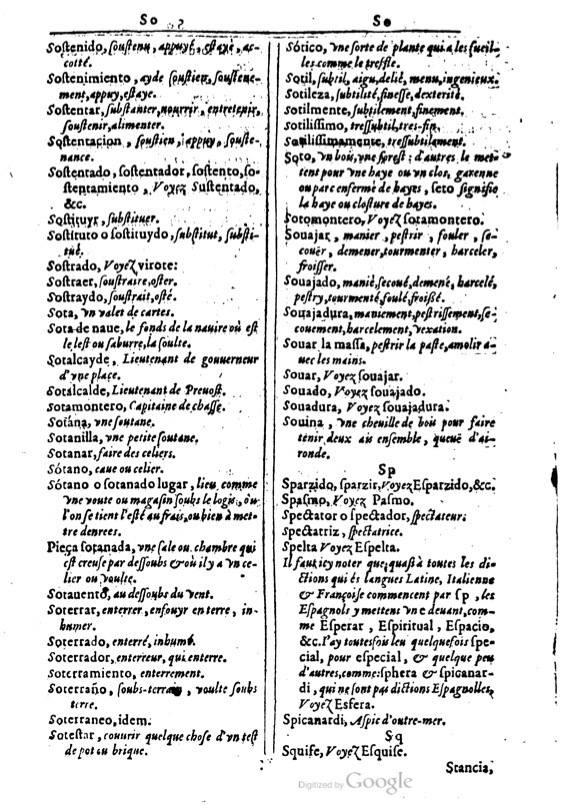 So
So
Sostenido, soustenu, appuyé, estayé, ac-
cotté.
Sostenimiento, ayde soustien, soustene-
ment, appuy, estaye.
Sostentar, substanter, nourrir, entretenir,
soustenir, alimenter.
Sostentacion, soustien, appuy, souste-
nance.
Sostentado, sostentador, sostento, so-
stentamiento, Voyez Sustentado,
&c.
Sostituyr, substituer.
Sostituto o sostituydo, substitut, substi-
tué.
Sostrado, Voyez virote:
Sostraer, soustraire, oster.
Sostraydo, soustrait, osté.
Sota, vn valet de cartes.
Sota de naue, le fonds de la nauire où est
le lest ou saburre, la soulte.
Sotalcayde, Lieutenant de gouuerneur
d'vne place.
Sotalcalde, Lieutenant de Preuost.
Sotamontero, Capitaine de chasse.
Sotána, vne soutane.
Sotanilla, vne petite soutane.
Sotanar, faire des celiers.
Sótano, caue ou celier.
Sótano o sotanado lugar, lieu comme
vne voute ou magasin soubs le logis, où
l'on se tient l'esté au frais, ou bien à met-
tre denrees.
Pieça sotanada, vne sale ou chambre qui
est creuse par dessoubs & où il y a vn ce-
lier ou voulte.
Sotauento, au dessoubs du vent.
Soterrar, enterrer, enfouyr en terre, in-
humer.
Soterrado, enterré, inhumé.
Soterrador, enterreur, qui enterre.
Soterramiento, enterrement.
Soterraño, soubs-terrain, voulte soubs
terre.
Soterraneo, idem.
Sotestar, couurir quelque chose d'vn test
de pot ou brique.
Sótico, vne sorte de plante qui a les fueil-
les comme le treffle.
Sotil, subtil, aigu, delié, menu, ingenieux.
Sotileza, subtilité, finesse, dexterité.
Sotilmente, subtilement, finement.
Sotilissimo, tressubtil, tres-fin.
Sotilissimamente, tressubtilement.
Soto, vn bois, vne forest; d'autres le met-
tent pour vne haye ou vn clos, garenne
ou parc enfermé de hayes, seto signifie
la haye ou closture de hayes.
Sotomontero, Voyez sotamontero.
Souajar, manier, pestrir, fouler, se-
couër, demener, tourmenter, harceler,
froisser.
Souajado, manié, secoué, demené, harcelé,
pestry, tourmenté, foulé, froißé.
Souajadura, maniement, pestrissement, se-
couement, harcelement, vexation.
Souar la massa, pestrir la paste, amolir a-
uec les mains.
Souar, Voyez souajar.
Souado, Voyez souajado.
Souadura, Voyez souajadura.
Souina, vne cheuille de bois pour faire
tenir deux ais ensemble, queuë d'ai-
ronde.
Sp
Sparzido, sparzir, Voyez Esparzido, &c.
Pasmo, Voyez Pasmo.
Spectator o spectador, spectateur.
Spectatriz, spectatrice.
Spelta Voyez Espelta.
Il faut icy noter que quasi à toutes les di-
ctions qui és langues Latine, Italienne
& Françoise commencent par sp, les
Espagnols y mettent vn e deuant, com-
me Esperar, Espiritual, Espacio,
&c. I'ay toutesfois leu quelquefois spe-
cial, pour especial, & quelque peu
d'autres, comme: sphera & spicanar-
di, qui ne sont pas dictions Espagnolles,
Voyez Esfera.
Spicanardi, Aspic d'outre-mer.
Sq
Squife, Voyez Esquife.
Stancia,
Digitized by Google